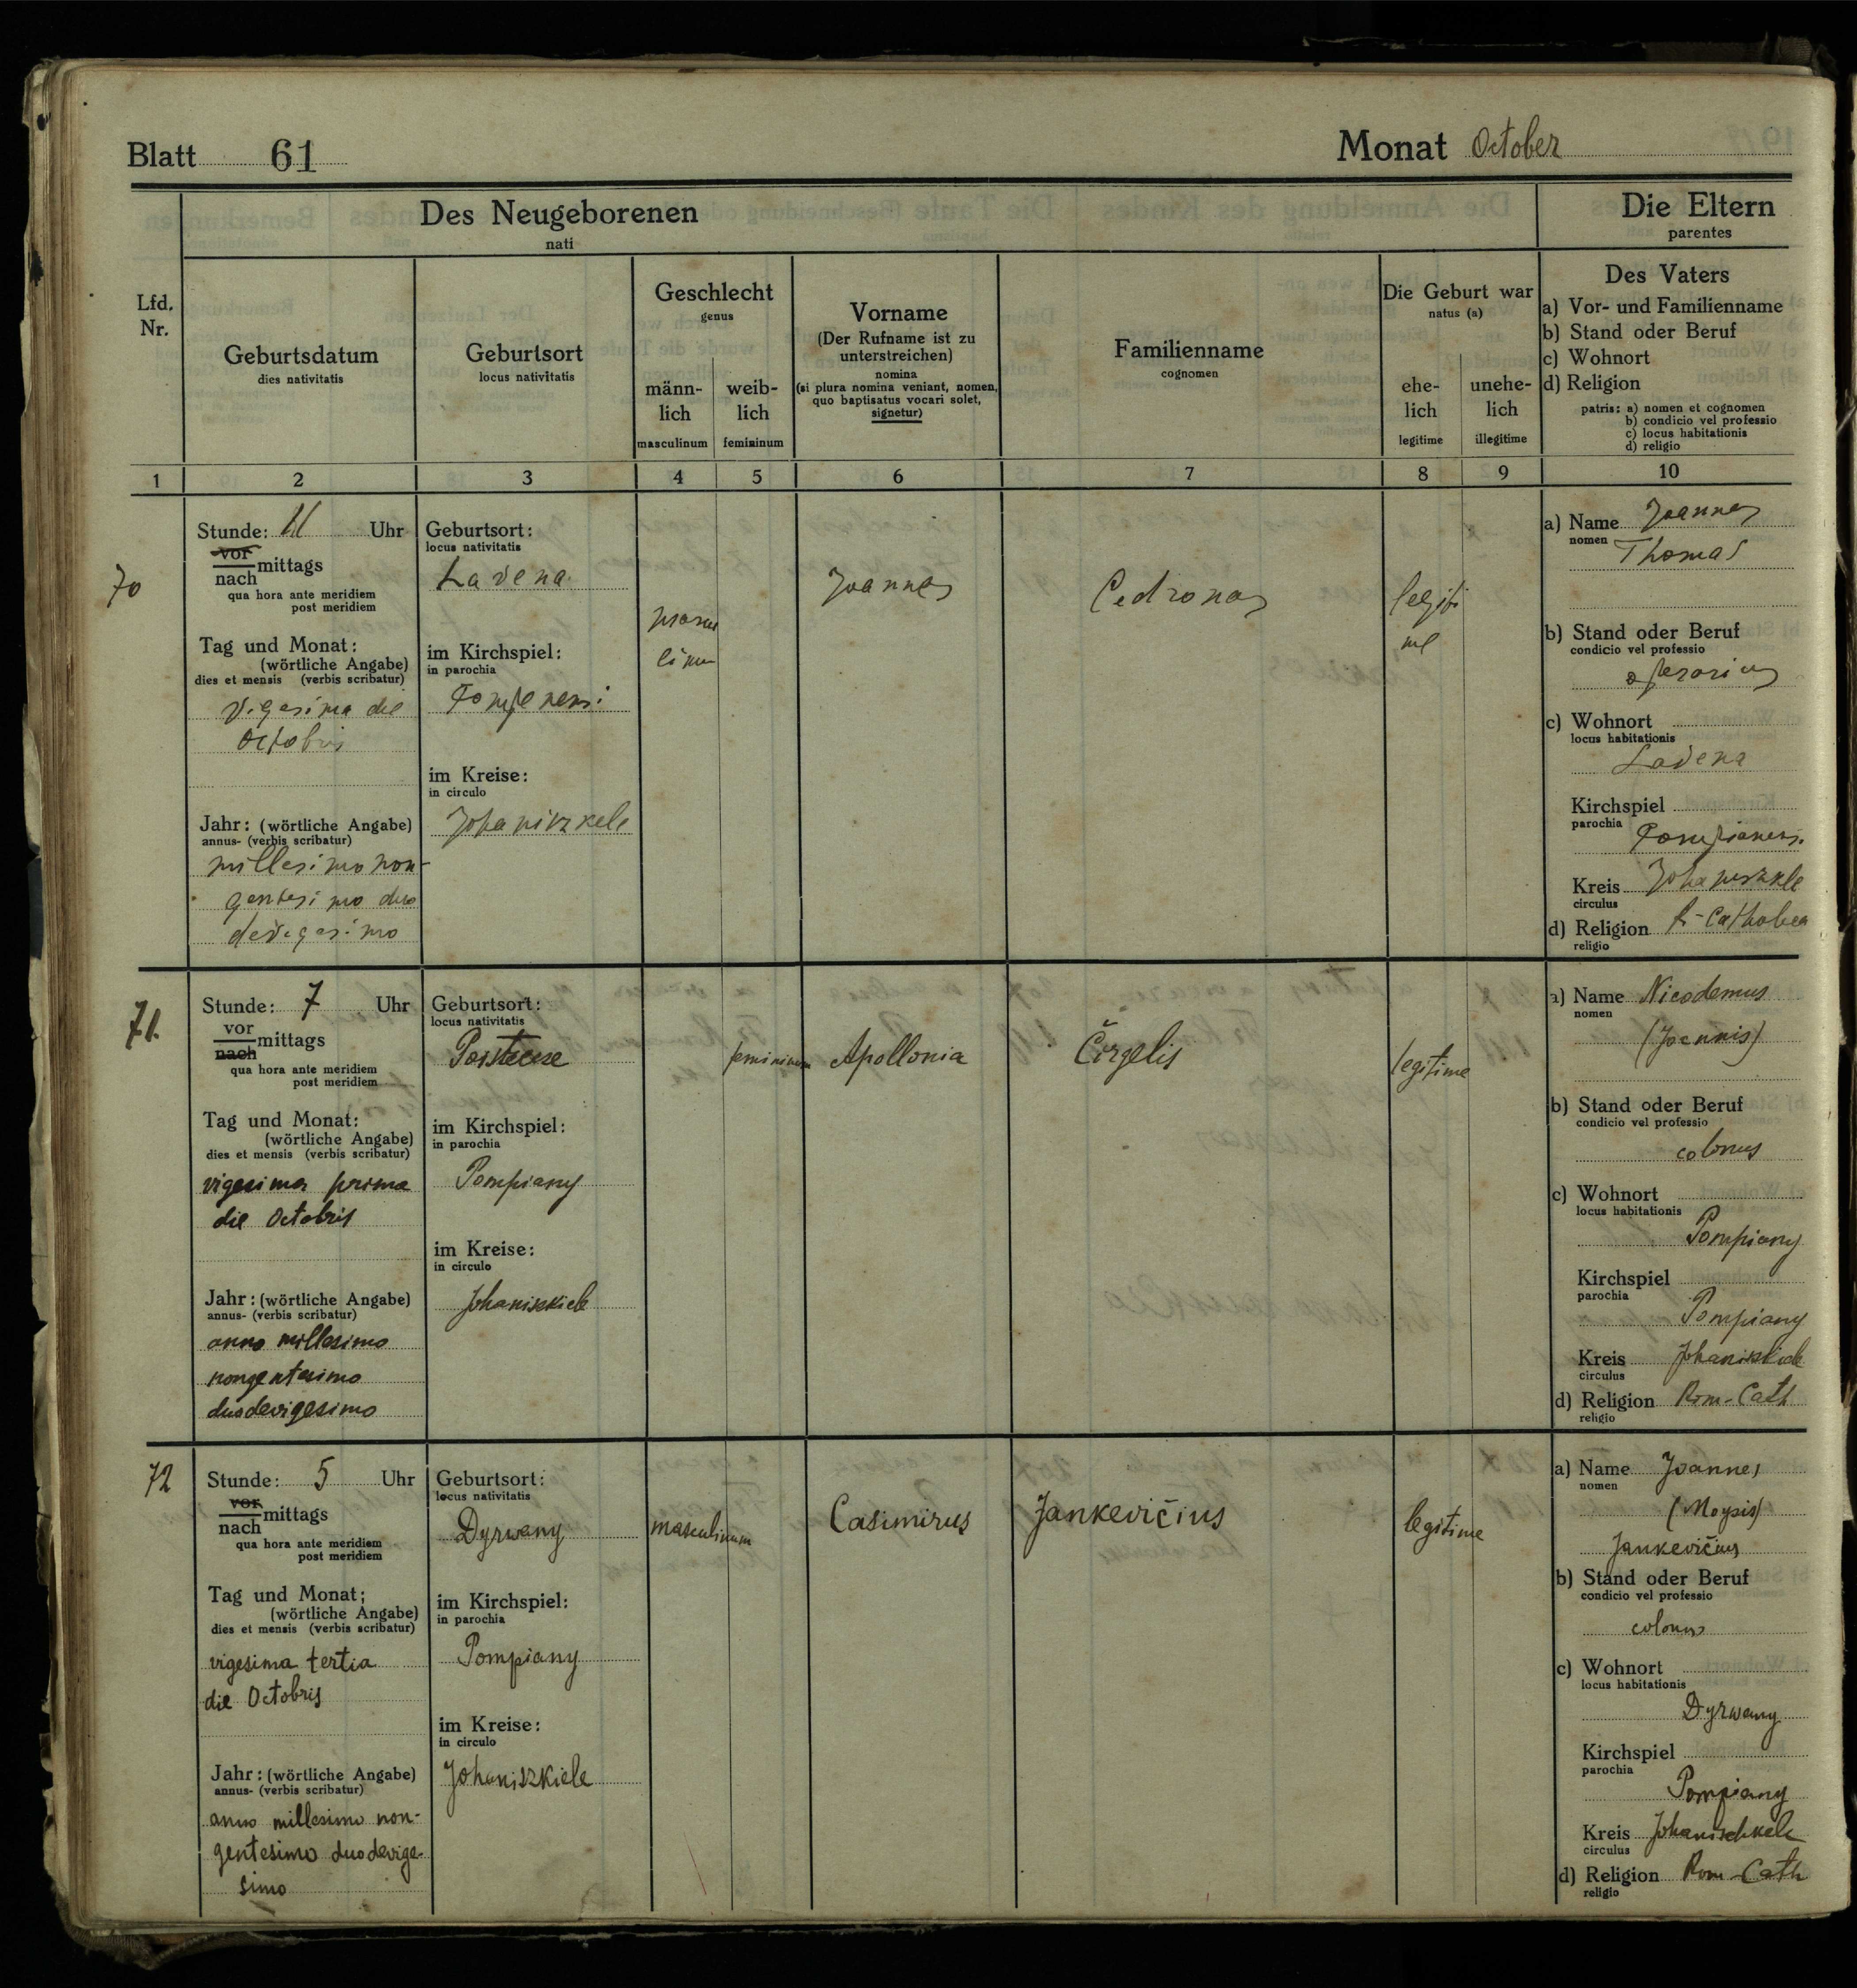 Blatt 61
Monat October
Des Neugeborenen
nati
Die Eltern
parentes
Lfd. Nr.
Geburtsdatum
dies nativitatis
Geburtsort
locus nativitatis
Geschlecht
genus
männ-
lich
masculinum
weib-
lich
femininum
Vorname
(Der Rufname ist zu
unterstreichen)
nomina
(si plura nomina veniant, nomen,
quo baptisatus vocari solet,
signetur)
Familienname
cognomen
Die Geburt war
natus (a)
ehe-
lich
legitime
unehe-
lich
illegitime
Des Vaters
a) Vor- und Familienname
b) Stand oder Beruf
c) Wohnort
d) Religion
patris: a) nomen et cognomen
b) condicio vel professio
c) locus habitationis
d) religio
1 2 3 4 5 6 7 8 9 10
70
Stunde: 11 Uhr
vor
nach mittags
qua hora ante meridiem
post meridiem
Tag und Monat:
(wörtliche Angabe)
dies et mensis (verbis scribatur)
Vigesima die
Octobris
Jahr: (wörtliche Angabe)
annus- (verbis scribatur)
millesimo non-
gentesimo duo
devigesimo
Geburtsort:
locus nativitatis
Lavena
im Kirchspiel:
in parochia
im Kreise:
in circulo
Johaniszkele
Joannes
Cedronas
legiti
me
a) Name Joannes
nomen
Thomas
b) Stand oder Beruf
condicio vel professio
operarius
c) Wohnort
locus habitationis
Lavena
Kirchspiel
parochia
Kreis Johaniszkele
circulus
d) Religion R-Catholica
religio
71.
Stunde: 7 Uhr
vor
nach mittags
qua hora ante meridiem
post meridiem
Tag und Monat:
(wörtliche Angabe)
dies et mensis (verbis scribatur)
vigesima prima
die Octobris
Jahr: (wörtliche Angabe)
annus- (verbis scribatur)
anno millesimo
nongentesimo
duodevigesimo
Geburtsort:
locus nativitatis
im Kirchspiel:
in parochia
Pompiany
im Kreise:
in circulo
Johaniszkiele
femininum
Apollonia
Čirgelis
legitime
a) Name Nicodemus
nomen
(Joannis)
b) Stand oder Beruf
condicio vel professio
colonus
c) Wohnort
locus habitationis
Pompiany
Kirchspiel
parochia
Pompiany
Kreis Johaniszkiele
circulus
d) Religion Rom-Cath
religio
72
Stunde: 5 Uhr
vor
nach mittags
qua hora ante meridiem
post meridiem
Tag und Monat;
(wörtliche Angabe)
dies et mensis (verbis scribatur)
vigesima tertia
die Octobris
Jahr: (wörtliche Angabe)
annus- (verbis scribatur)
anno millesimo non-
gentesimo duodevige-
simo
Geburtsort:
locus nativitatis
Dyrwany
im Kirchspiel:
in parochia
Pompiany
im Kreise:
in circulo
Johaniszkiele
masculinum
Casimirus
Jankevičius
legitime
a) Name Joannes
nomen
(Moysis)
Jankevičius
b) Stand oder Beruf
condicio vel professio
colonus
c) Wohnort
locus habitationis
Dyrwany
Kirchspiel
parochia
Pompiany
Kreis Johanischkele
circulus
d) Religion Rom-Cath
religio